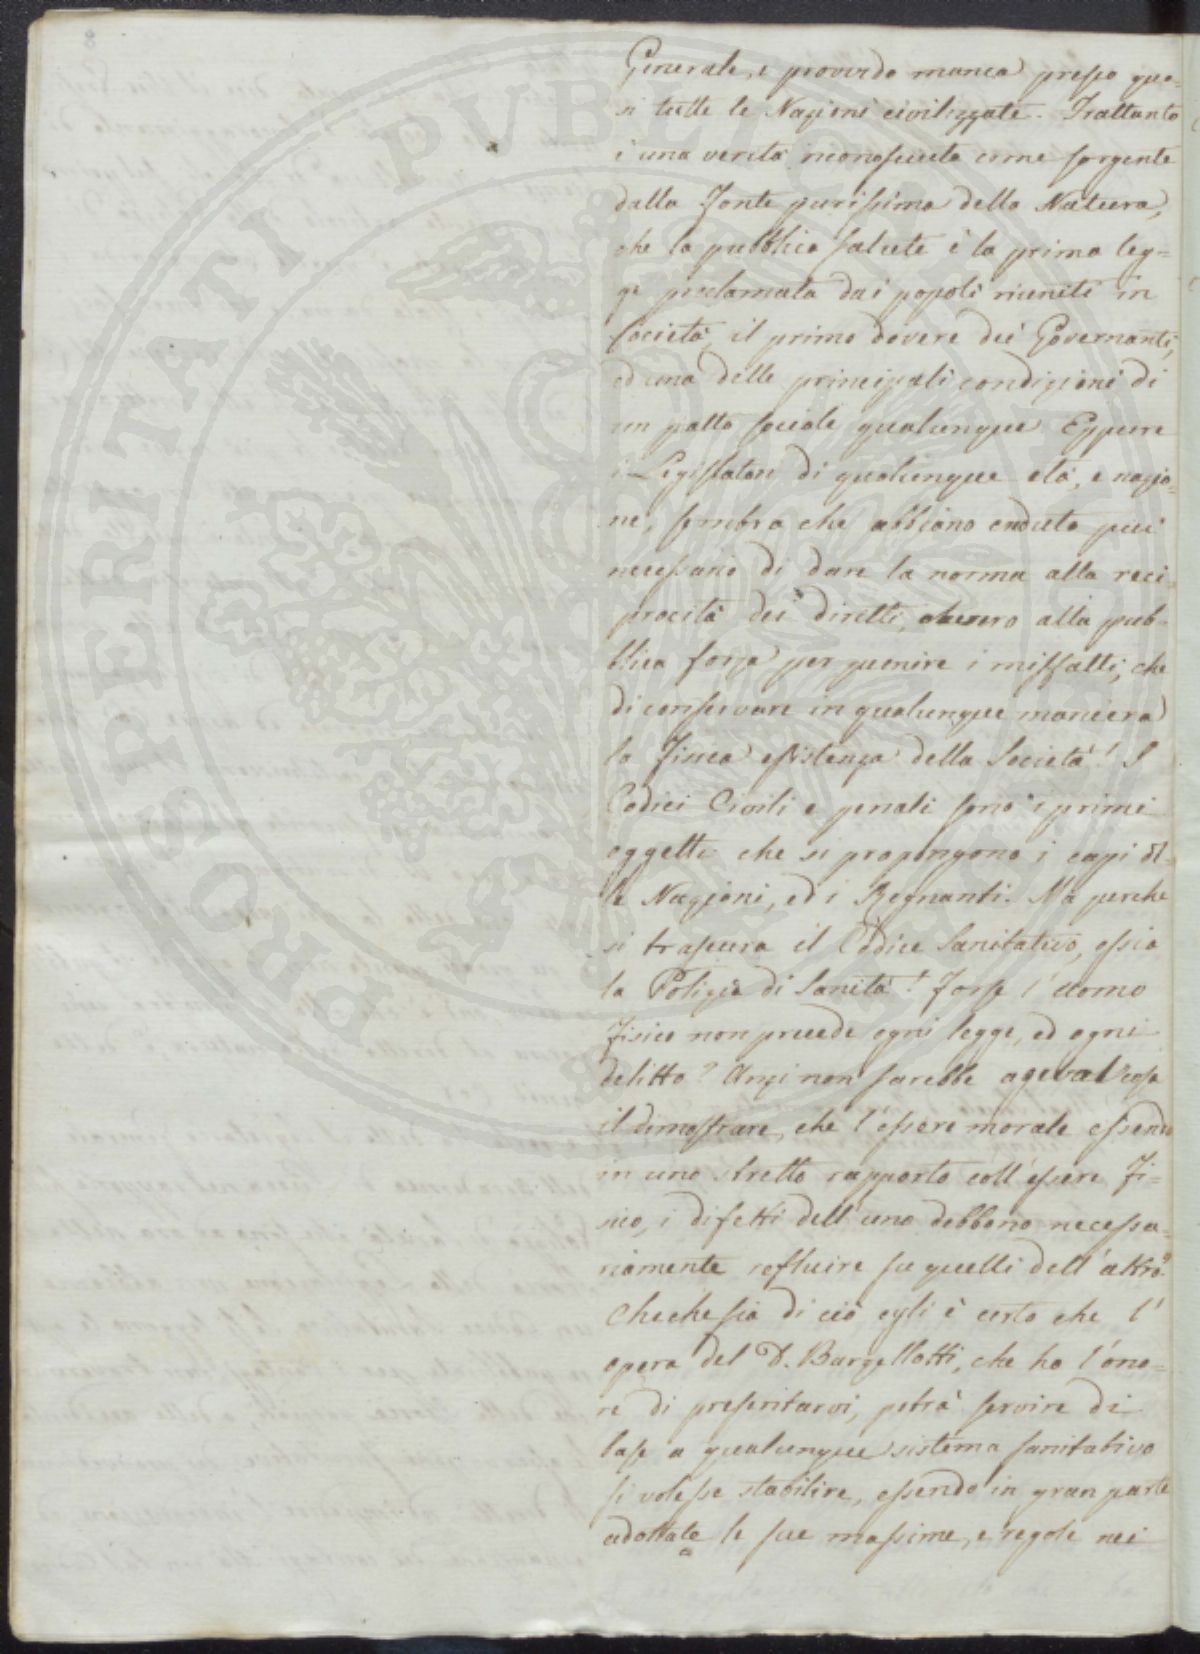 8
Generale, e provvido manca presso qua-
si tutte le Nazioni civilizzate. Trattanto
è una verità riconosciuta come sorgente
dalla Fonte purissima della Natura,
che la pubblica salute è la prima leg=
ge proclamata dai popoli riuniti in
società, il primo dovere dei Governanti,
ed una delle principali condizioni di
un patto sociale qualunque Eppure
i Legislatori di qualunque età, e nazio-
ne, sembra che abbiano creduto più
necessario di dare la norma alla reci-
procità dei diritti, ovvero alla pub-
blica forza per punire i misfatti, che
di conservare in qualunque maniera
la Fisica esistenza della Società! I
Codici Civili e penali sono i primi
oggetti che si propongono i capi del-
le Nazioni, ed i Regnanti. Ma perche
si trascura il Codice Sanitativo, ossia
la Polizia di Sanità! Forse l'uomo
Fisico non precede ogni legge, ed ogni
delitto? Anzi non sarebbe ageval cosa
il dimostrare, che l'essere morale essendo
in uno stretto rapporto coll'essere Fi-
sico, i difetti dell'uno debbono necessa-
riamente refluire su quelli dell'altro?
Checche sia di ciò egli è certo che l'
opera del D. Barzellotti, che ho l'ono-
re di presentarvi, potrà servire di
base a qualunque sistema sanitativo
si volesse stabilire, essendo in gran parte
adottate le sue massime, e regole nei
PROSPERITATI PUBLICAE